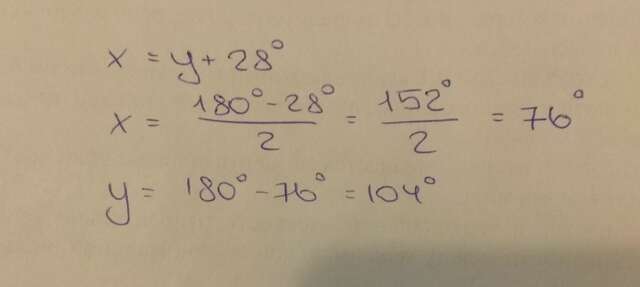 x = y + 28°
x = (180° - 28°)/2 = 152°/2 = 76°
y = 180° - 76° = 104°